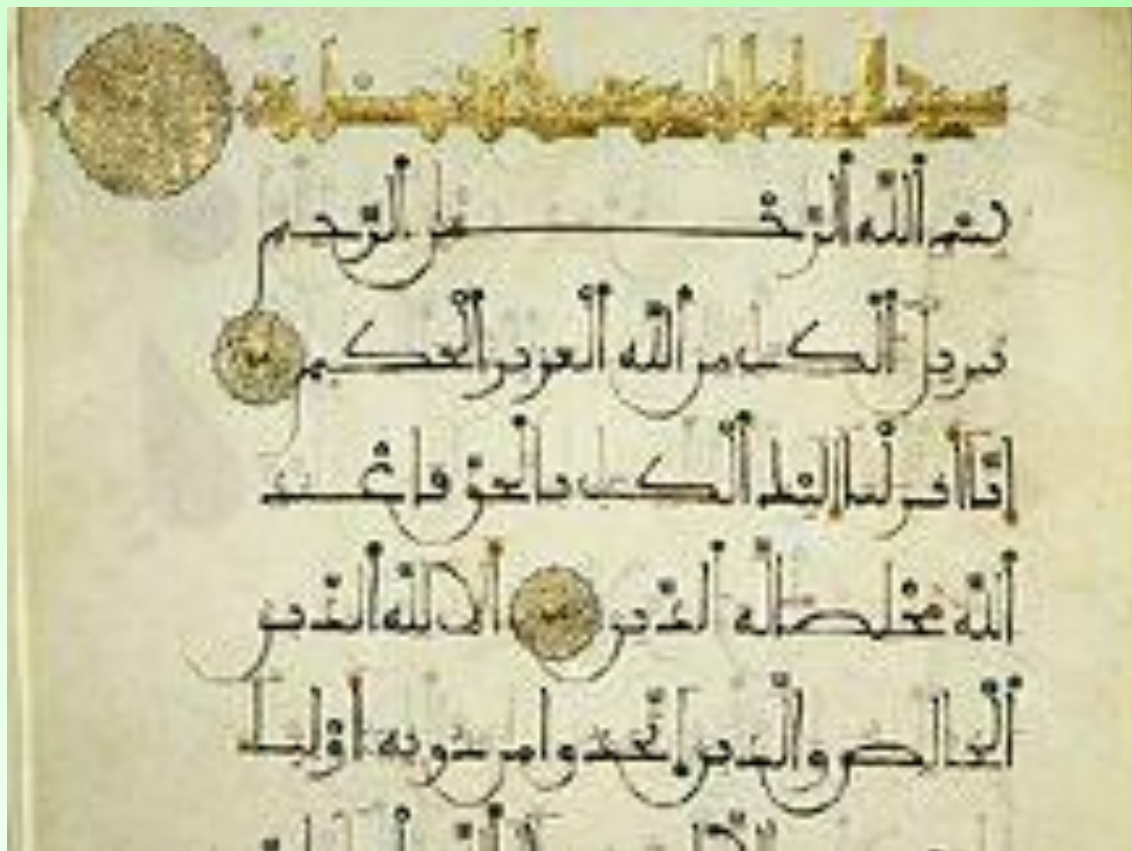 بسم الله الرحمن الرحيم
تنزيل الكتب من الله العزيز الحكيم
إنا أنزلنا إليك الكتب بالحق فاعبد
الله مخلصا له الدين ألا لله الدين
الخالص والذين اتخذوا من دونه أوليا